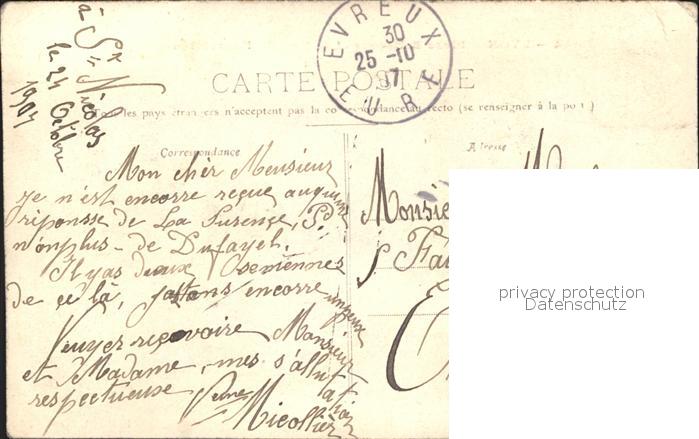 à St Nicolas
le 24 Octobre
1907
EVREUX
30
25 -10
07
EURE
CARTE POSTALE
Tous les pays étrangers n'acceptent pas la correspondance au recto (se renseigner à la poste)
Correspondance
Adresse
Mon chér Monsieur
Je n'est encorre reçue auqune
réponsse de La
n'onplus - de Dufayel.
Il yas deuxe semiennes
de ce là, jattans encorre unpeux
Veuyez reçevoire Monsieur
et Madame, mes s'allutation
respectueuse
Micollier
Monsie
privacy protection
Datenschutz